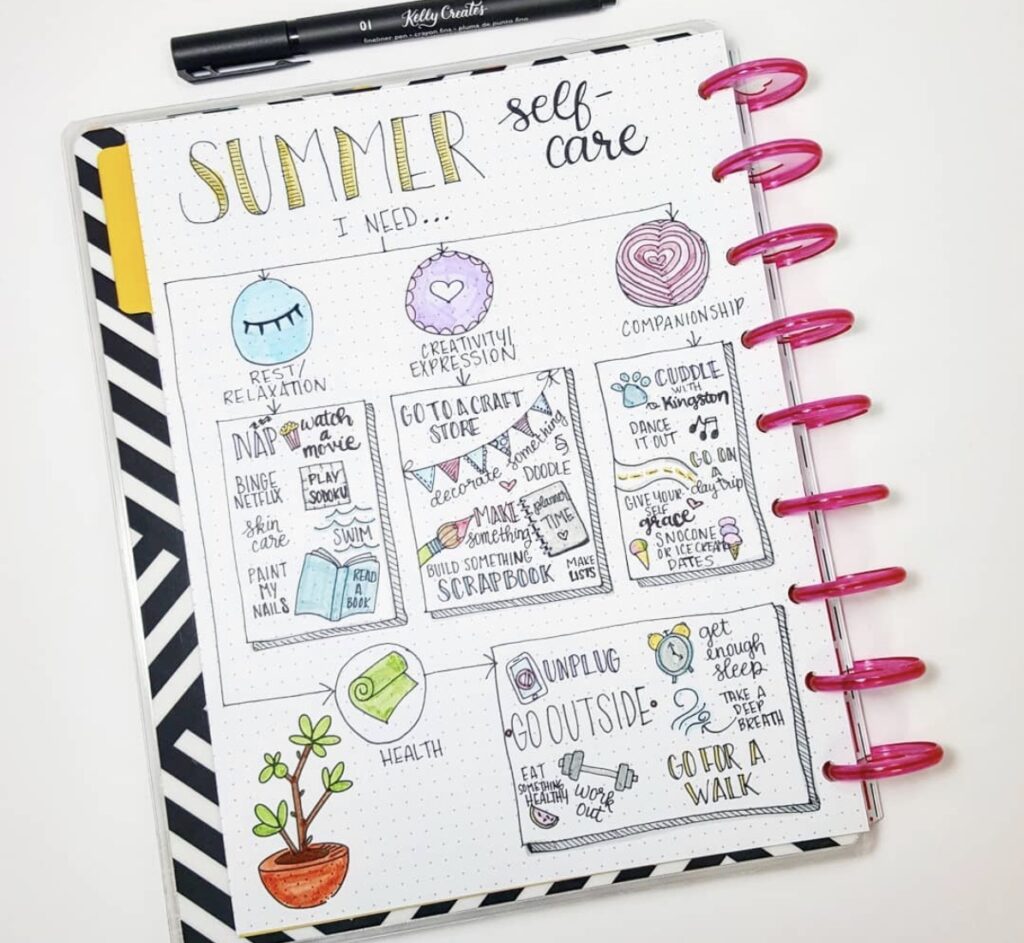 01
Kelly Creates
fineliner pen • crayon fins • pluma de punto fino
SUMMER
self-
care
I NEED...
REST/
RELAXATION
CREATIVITY/
EXPRESSION
COMPANIONSHIP
zzz
NAP
watch
a
movie
BINGE
NETFLIX
PLAY
SODOKU
skin
care
SWIM
PAINT
MY
NAILS
READ
A
BOOK
GO TO A CRAFT
STORE
decorate something
DOODLE
MAKE
something
planner
TIME
BUILD SOMETHING
SCRAPBOOK
MAKE
LISTS
CUDDLE
WITH
Kingston
DANCE
IT OUT
GO ON
A
day trip
GIVE YOUR
SELF
grace
SNOCONE
OR ICE CREAM
DATES
HEALTH
UNPLUG
get
enough
sleep
GO OUTSIDE
TAKE A
DEEP
BREATH
EAT
SOMETHING
HEALTHY
work
out
GO FOR A
WALK